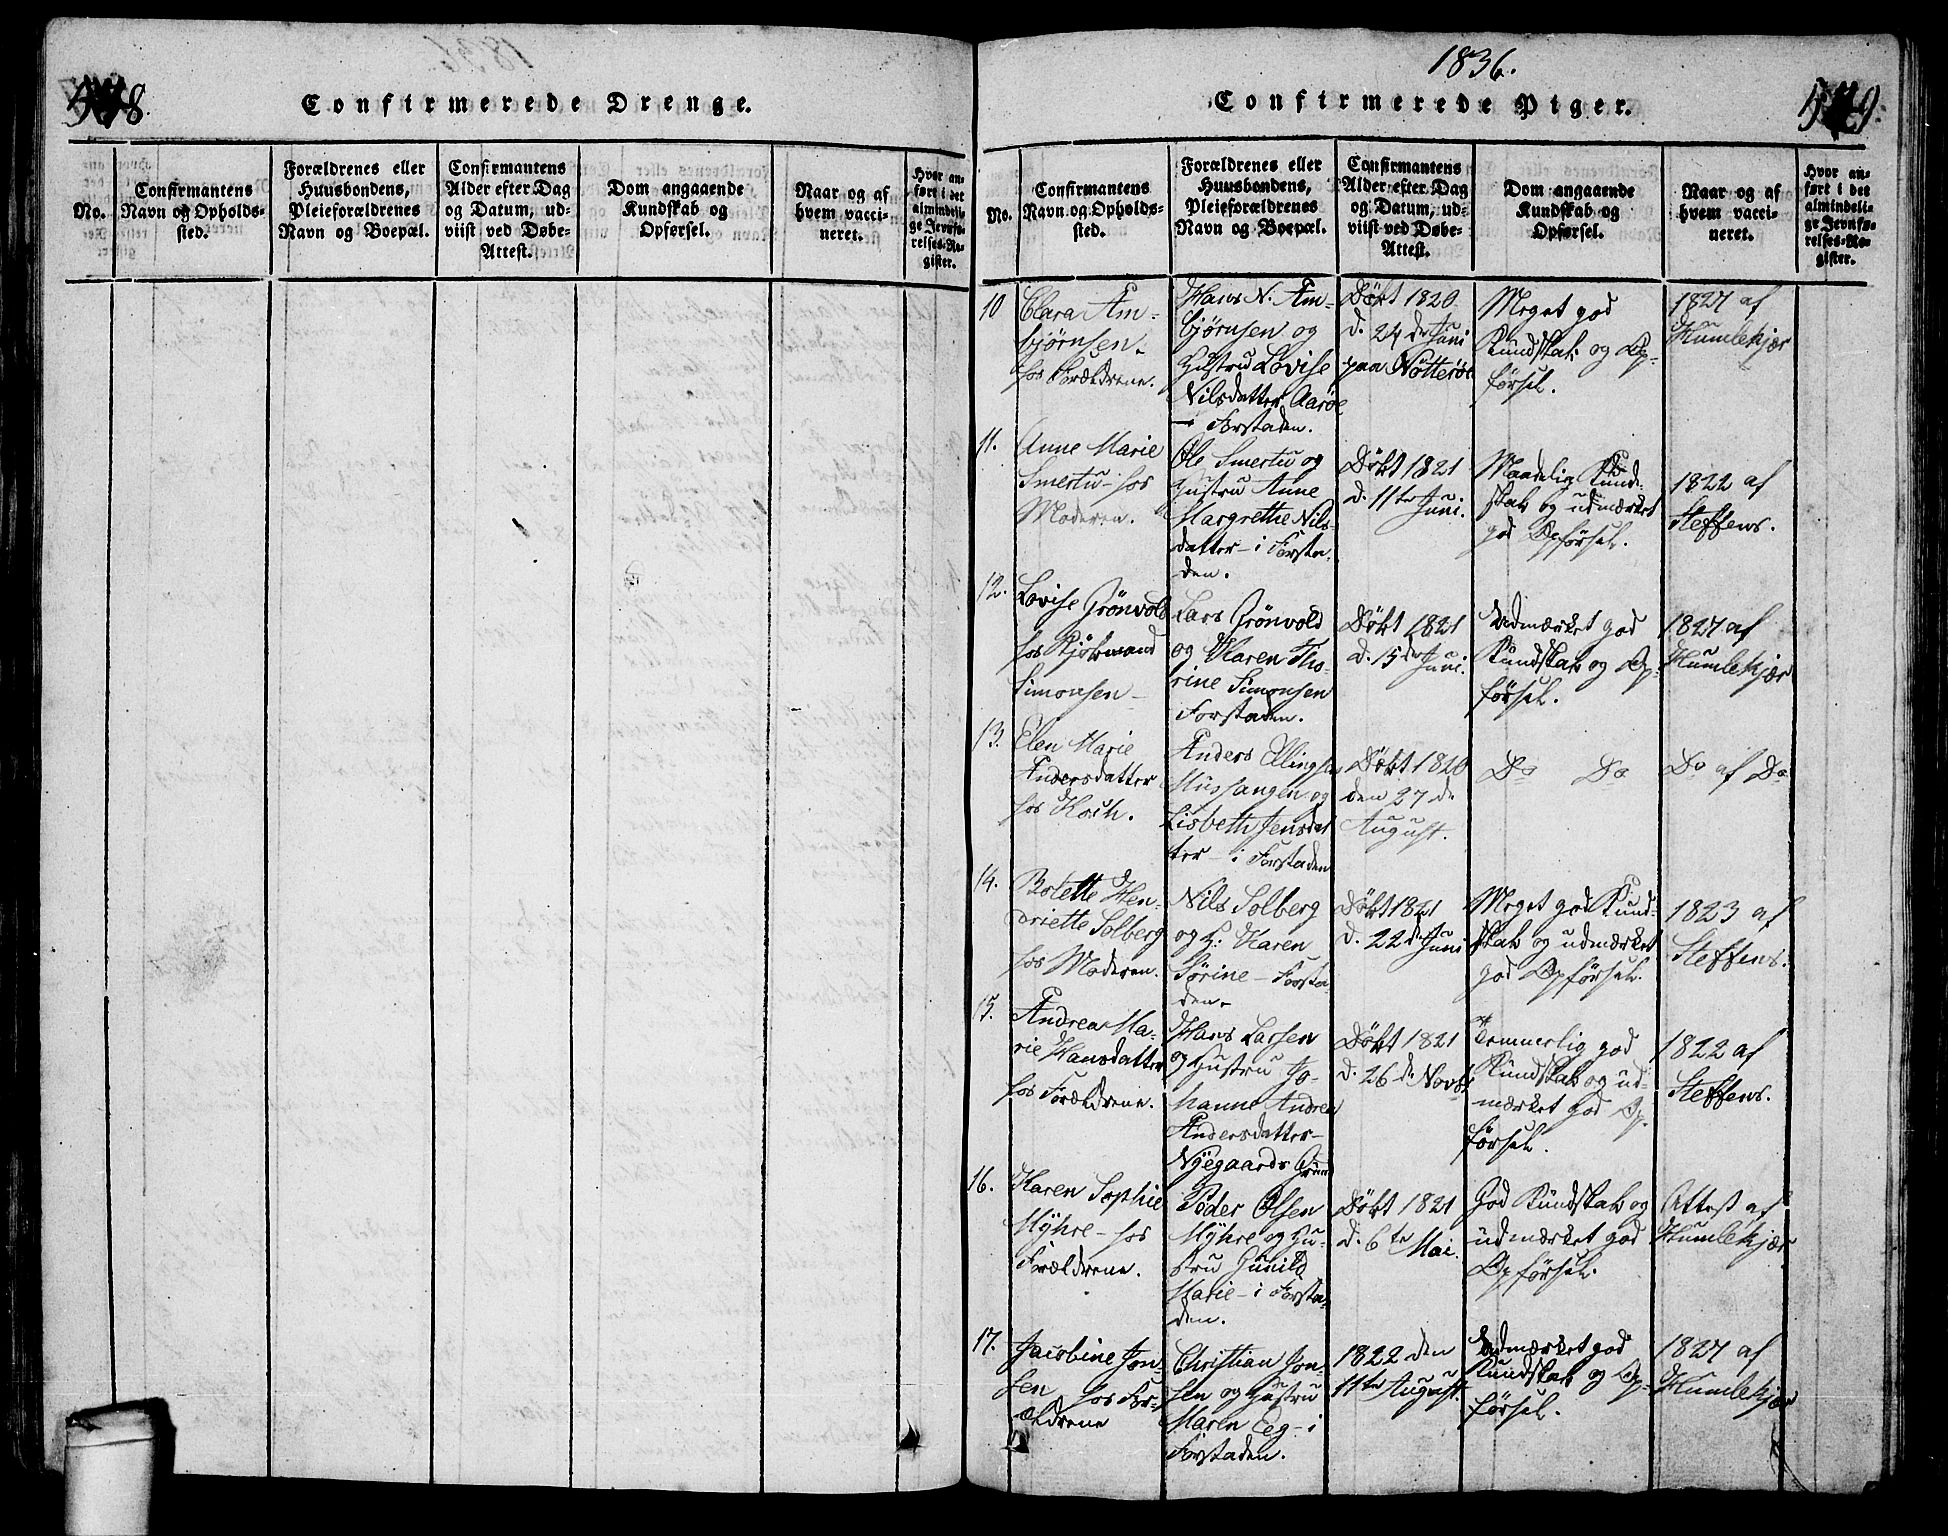 8.
Confirmerede Drenge.
No.
Confirmantens
Navn og Opholds-
sted.
Forældrenes eller
Huusbondens,
Pleieforældrenes
Navn og Boepæl.
Confirmantens
Alder efter Dag
og Datum, ud-
viist ved Døbe-
Attest.
Dom angaaende
Kundskab og
Opførsel.
Naar og af
hvem vacci-
neret.
Hvor an-
ført i det
almindeli-
ge Jevnfø-
relses-Re-
gister.
1836.
Confirmerede Piger.
9.
No.
Confirmantens
Navn og Opholds-
sted.
Forældrenes eller
Huusbondens,
Pleieforældrenes
Navn og Boepæl.
Confirmantens
Alder efter Dag
og Datum, ud-
viist ved Døbe-
Attest.
Dom angaaende
Kundskab og
Opførsel.
Naar og af
hvem vacci-
neret.
Hvor an-
ført i det
almindeli-
ge Jevnfø-
relses-Re-
gister.
10
Clara Am-
bjørnsen-
hos Forældrene.
Hans N. Am-
bjørnsen og
Hustru Lovise
Nilsdatter Aarøe
- Forstaden.
Døbt 1820
d. 24de Juni
paa Nøtterøe
Meget god
Kundskab og Op-
førsel.
1827 af
Humlekjær
11.
Anne Marie
Smertu - hos
Moderen.
Ole Smertu og
Hustru Anne
Margrethe Nils-
datter - i Forsta-
den.
Døbt 1821
d. 11te Juni.
Maadelig Kund-
skab og udmærket
god Opførsel.
1822 af
Steffens.
12.
Lovise Grönvold
hos
Simonsen -
Lars Grönvold
og Karen Tho-
rine Simonsen
Forstaden.
Døbt 1821
d. 15de Juni.
Udmærket god
Kundskab og Op-
førsel.
1827 af
Humlekjær
13.
Elen Marie
Andersdatter
hos Koch.
Anders Ellingsen
og
Lisbeth Jensdat
ter - i Forstaden
Døbt 1820
den 27de
August.
Do Do
Do af Do
14.
Bolette Hen-
driette Solberg
hos Moderen.
Nils Solberg
og H: Karen
Sørine - Forsta-
den.
Døbt 1821
d. 22de Juni
Meget god Kund-
skab og udmærket
god Opførsel.
1823 af
Steffens.
15.
Andrea Ma-
rie Hansdatter
hos Forældrene.
Hans Larsen
og Hustru Jo-
hanne Andrea
Andersdatter -
Nyegaards Grund
Døbt 1821
d. 26de Novbr
Temmerlig god
Kundskab og ud-
mærket god Op-
førsel.
1822 af
Steffens.
16.
Karen Sophie
Myhre - hos
Forældrene.
Peder Olsen
Myhre og Hu-
stru Gunild
Marie - i Forsta-
den.
Døbt 1821
d. 6te Mai.
God Kundskab og
udmærket god
Opførsel.
Attest af
Humlekjær
17.
Jacobine Jon-
sen hos For-
ældrene
Christian Jon-
sen og Hustru
Maren Eeg - i
Forstaden.
1822 den
11te August.
Udmærket god
Kundskab og Op-
førsel.
1827 af
Humlekjær